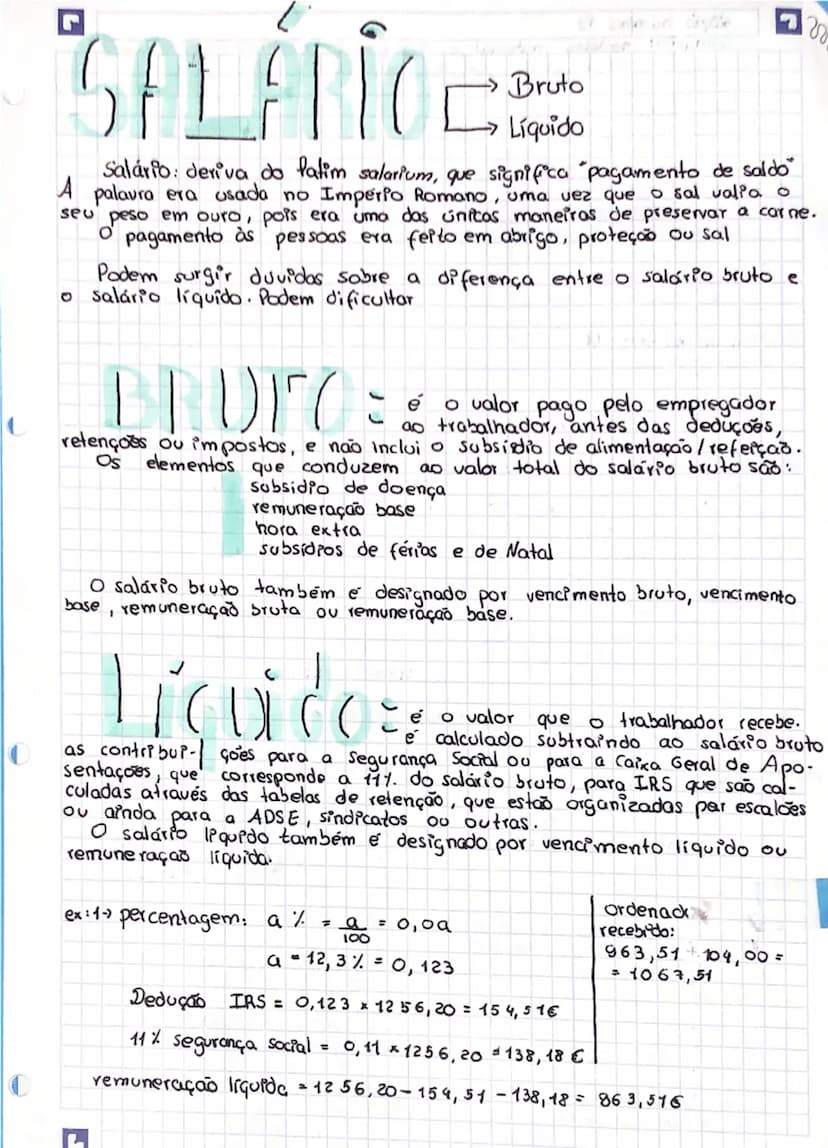 SALÁRIO
Bruto
Líquido
Salário: deriva do latim salarium, que significa "pagamento de saldo"
A palavra era usada no Império Romano, uma vez que o sal valia o
seu peso em ouro, pois era uma das únicas maneiras de preservar a carne.
O pagamento às pessoas era feito em abrigo, proteção ou sal
Podem surgir duvidas sobre a diferença entre o salário bruto e
o salário líquido. Podem dificultar
BRUTO =
é o valor pago pelo empregador
ao trabalhador, antes das deduções,
retenções ou impostos, e não inclui o subsídio de alimentação/refeição.
Os elementos que conduzem ao valor total do salário bruto são:
subsidio de doença
remuneração base
hora extra
subsídios de férias e de Natal
O salário bruto também é designado por vencimento bruto, vencimento
base, remuneração bruta ou remuneração base.
Líquido =
é o valor que o trabalhador recebe.
é calculado subtraindo ao salário bruto
as contribui-ções para a Segurança Social ou para a Caixa Geral de Apo-
sentações, que corresponde a 11% do salário bruto, para IRS que são cal-
culadas através das tabelas de retenção, que estão organizadas por escalões
ou ainda para a ADSE, sindicatos ou outras.
O salário líquido também é designado por vencimento líquido ou
remuneração líquida.
ex:1→ percentagem: a % = a/100 = 0,0a
a = 12,3% = 0,123
Dedução IRS = 0,123 × 1256,20 = 154,51€
11% segurança social = 0,11 × 1256,20 = 138,18 €
remuneração líquida = 1256,20 - 154,51 - 138,18 = 863,51€
ordenado
recebido:
963,51 + 104,00 =
= 1067,51